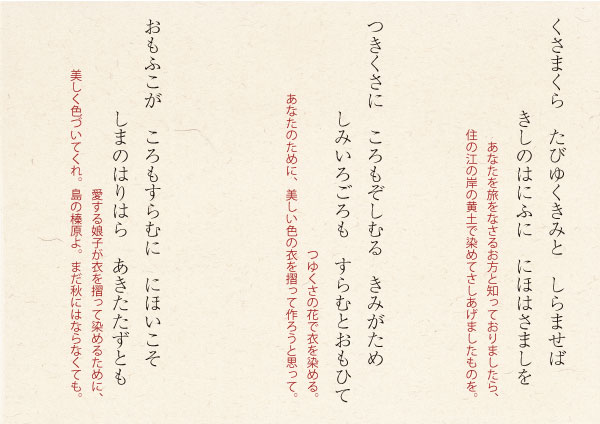 くさまくら　たびゆくきみと　しらませば
きしのはにふに　にほはさましを
あなたを旅をなさるお方と知っておりましたら、
住の江の岸の黄土で染めてさしあげましたものを。
つきくさに　ころもぞしむる　きみがため
しみいろごろも　すらむとおもひて
つゆくさの花で衣を染める。
あなたのために、美しい色の衣を摺って作ろうと思って。
おもふこが　ころもすらむに　にほいこそ
しまのはりはら　あきたたずとも
愛する娘子が衣を摺って染めるために、
美しく色づいてくれ。島の榛原よ。まだ秋にはならなくても。